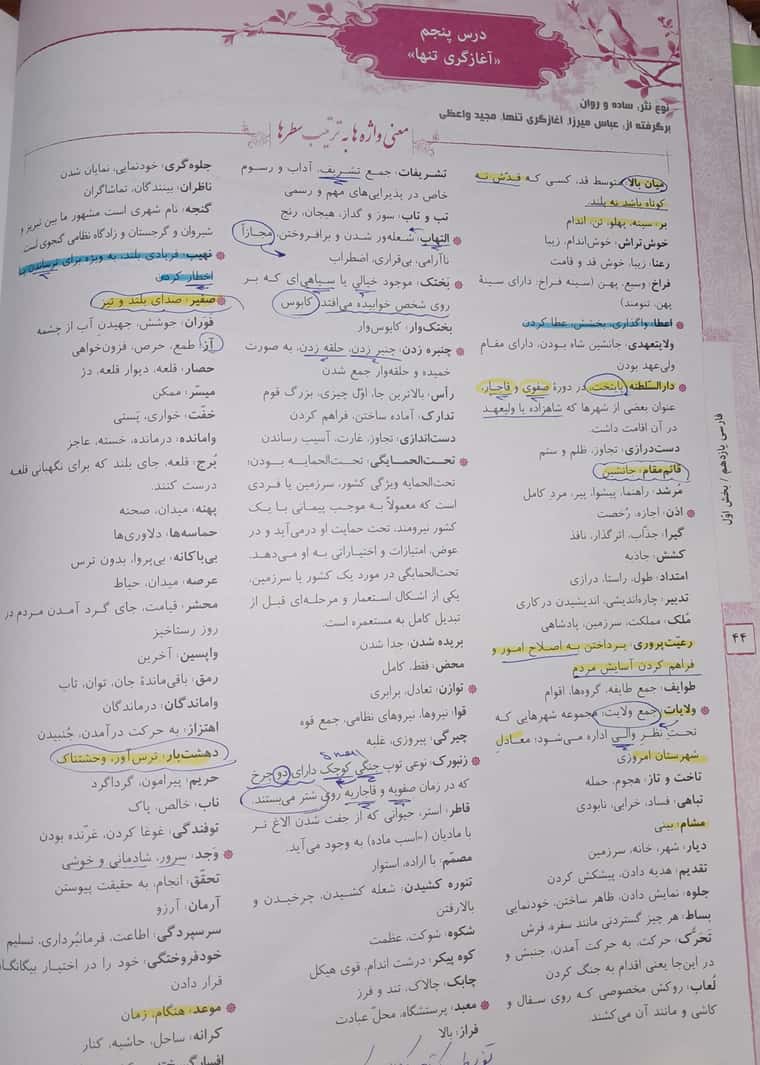 درس پنجم
«آغازگری تنها»
نوع نثر، ساده و روان
برگرفته از، عباس میرزا، آغازگری تنها، مجید واعظی
معنی واژه‌ها به ترتیب سطرها
میان بالا: متوسط قد، کسی که قدّش نه
کوتاه باشد نه بلند.
بر: سینه، پهلو، تن، اندام
خوش‌تراش: خوش‌اندام، زیبا
رعنا: زیبا، خوش قد و قامت
فراخ: وسیع، پهن (سینه فراخ: دارای سینهٔ
پهن، تنومند)
اعطا: واگذاری، بخشش، عطا کردن
ولایتعهدی: جانشین شاه بودن، دارای مقام
ولی‌عهد بودن
دارالسّلطنه: پایتخت، در دورهٔ صفوی و قاجار،
عنوان بعضی از شهرها که شاهزاده یا ولیعهد
در آن اقامت داشت.
دست‌درازی: تجاوز، ظلم و ستم
قائم‌مقام: جانشین
مُرشد: راهنما، پیشوا، پیر، مردِ کامل
اذن: اجازه، رُخصت
گیرا: جذّاب، اثرگذار، نافذ
کشش: جاذبه
امتداد: طول، راستا، درازی
تدبیر: چاره‌اندیشی، اندیشیدن در کاری
مُلک: مملکت، سرزمین، پادشاهی
رعیّت‌پروری: پرداختن به اصلاح امور و
فراهم کردن آسایش مردم
طوایف: جمع طایفه، گروه‌ها، اقوام
ولایات: جمع ولایت؛ مجموعه شهرهایی که
تحت نظر والی اداره می‌شود؛ معادل
شهرستان امروزی
تاخت و تاز: هجوم، حمله
تباهی: فساد، خرابی، نابودی
مشام: بینی
دیار: شهر، خانه، سرزمین
تقدیم: هدیه دادن، پیشکش کردن
جلوه: نمایش دادن، ظاهر ساختن، خودنمایی
بساط: هر چیز گستردنی مانند سفره، فرش
تحرّک: حرکت، به حرکت آمدن، جنبش و
در این‌جا یعنی اقدام به جنگ کردن
لُعاب: روکش مخصوصی که روی سفال و
کاشی و مانند آن می‌کشند.
تشریفات: جمع تشریف، آداب و رسوم
خاص در پذیرایی‌های مهم و رسمی
تب و تاب: سوز و گداز، هیجان، رنج
التهاب: شعله‌ور شدن و برافروختن، مجازاً
ناآرامی، بی‌قراری، اضطراب
بَختک: موجود خیالی یا سیاهی‌ای که بر
روی شخص خوابیده می‌افتد؛ کابوس
بختک‌وار: کابوس‌وار
چنبره زدن: چنبر زدن، حلقه زدن، به صورت
خمیده و حلقه‌وار جمع شدن
رأس: بالاترین جا، اوّل چیزی، بزرگ قوم
تدارک: آماده ساختن، فراهم کردن
دست‌اندازی: تجاوز، غارت، آسیب رساندن
تحت‌الحمایگی: تحت‌الحمایه بودن؛
تحت‌الحمایه ویژگی کشور، سرزمین یا فردی
است که معمولاً به موجب پیمانی با یک
کشور نیرومند، تحت حمایت او درمی‌آید و در
عوض، امتیازات و اختیاراتی به او می‌دهد.
تحت‌الحمایگی در مورد یک کشور یا سرزمین،
یکی از اشکال استعمار و مرحله‌ای قبل از
تبدیل کامل به مستعمره است.
بریده شدن: جدا شدن
محض: فقط، کامل
توازن: تعادل، برابری
قوا: نیروها، نیروهای نظامی، جمع قوه
چیرگی: پیروزی، غلبه
زنبورک: نوعی توپ جنگی کوچک دارای دو چرخ
که در زمان صفویه و قاجاریه روی شتر می‌بستند.
قاطر: استر، حیوانی که از جفت شدن الاغ نر
با مادیان (=اسب ماده) به وجود می‌آید.
مصمّم: با اراده، استوار
تنوره کشیدن: شعله کشیدن، چرخیدن و
بالارفتن
شکوه: شوکت، عظمت
کوه پیکر: درشت اندام، قوی هیکل
چابک: چالاک، تند و فرز
معبد: پرستشگاه، محلّ عبادت
فراز: بالا
جلوه‌گری: خودنمایی، نمایان شدن
ناظران: بینندگان، تماشاگران
گنجه: نام شهری است مشهور ما بین تبریز و
شیروان و گرجستان و زادگاه نظامی گنجوی است
نهیب: فریادی بلند، به ویژه برای ترساندن یا
اخطار کردن
صفیر: صدای بلند و تیز
فَوَران: جوشش، جهیدنِ آب از چشمه
آز: طمع، حرص، فزون‌خواهی
حصار: قلعه، دیوار قلعه، دژ
میسّر: ممکن
خفّت: خواری، پَستی
وامانده: درمانده، خسته، عاجز
بُرج: قلعه، جای بلند که برای نگهبانی قلعه
درست کنند.
پهنه: میدان، صحنه
حماسه‌ها: دلاوری‌ها
بی‌باکانه: بی‌پروا، بدون ترس
عرصه: میدان، حیاط
محشر: قیامت، جای گرد آمدن مردم در
روز رستاخیز
واپسین: آخرین
رمق: باقی‌ماندهٔ جان، توان، تاب
واماندگان: درماندگان
اهتزاز: به حرکت درآمدن، جُنبیدن
دهشت‌بار: ترس‌آور، وحشتناک
حریم: پیرامون، گرداگرد
ناب: خالص، پاک
توفندگی: غوغا کردن، غرّنده بودن
وَجد: سرور، شادمانی و خوشی
تحقّق: انجام، به حقیقت پیوستن
آرمان: آرزو
سرسپردگی: اطاعت، فرمانبُرداری، تسلیم
خودفروختگی: خود را در اختیار بیگانگا
قرار دادن
موعد: هنگام، زمان
کرانه: ساحل، حاشیه، کنار
فارسی یازدهم / بخش اوّل
۴۴